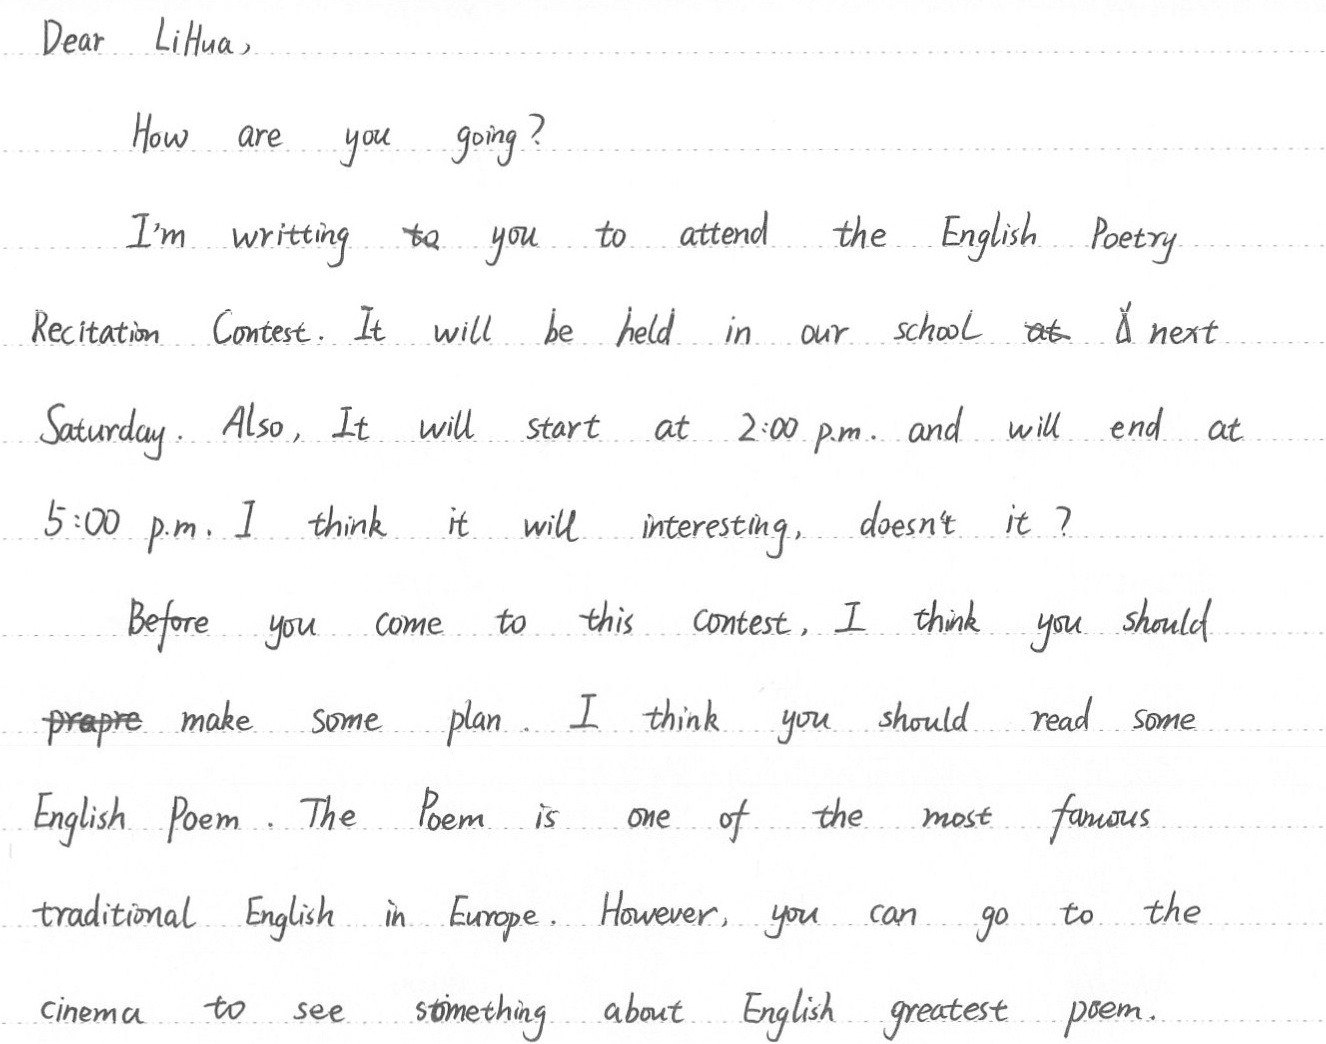 Dear LiHua,
How are you going?
I'm writting to you to attend the English Poetry
Recitation Contest. It will be held in our school at next
Saturday. Also, It will start at 2:00 p.m. and will end at
5:00 p.m. I think it will interesting, doesn't it?
Before you come to this contest, I think you should
prapre make some plan. I think you should read some
English Poem. The Poem is one of the most famous
traditional English in Europe. However, you can go to the
cinema to see something about English greatest poem.